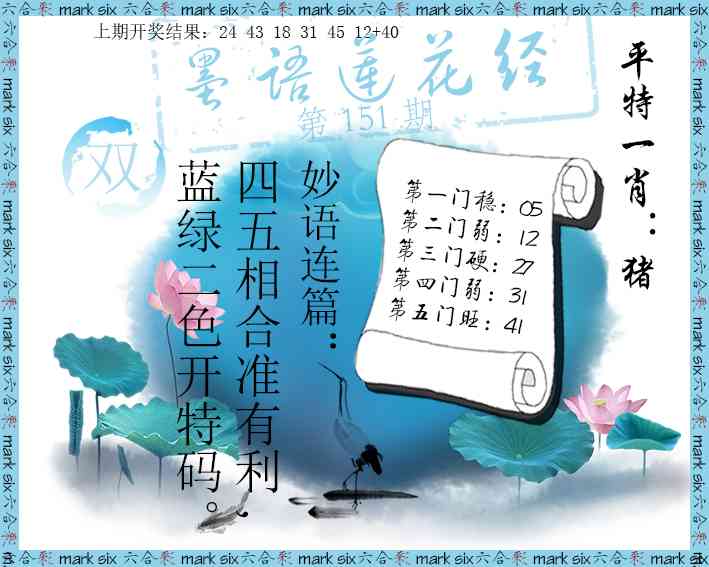 六合彩 mark six 六合彩 mark six 六合彩 mark six 六合彩 mark six 六合彩 mark six
上期开奖结果：24 43 18 31 45 12+40
墨语莲花经
第 151 期
双
平特一肖：猪
妙语连篇：
四五相合准有利，
蓝绿二色开特码。
第一门稳：05
第二门弱：12
第三门硬：27
第四门弱：31
第五门旺：41
六合彩 mark six 六合彩 mark six 六合彩 mark six 六合彩 mark six 六合彩 mark six